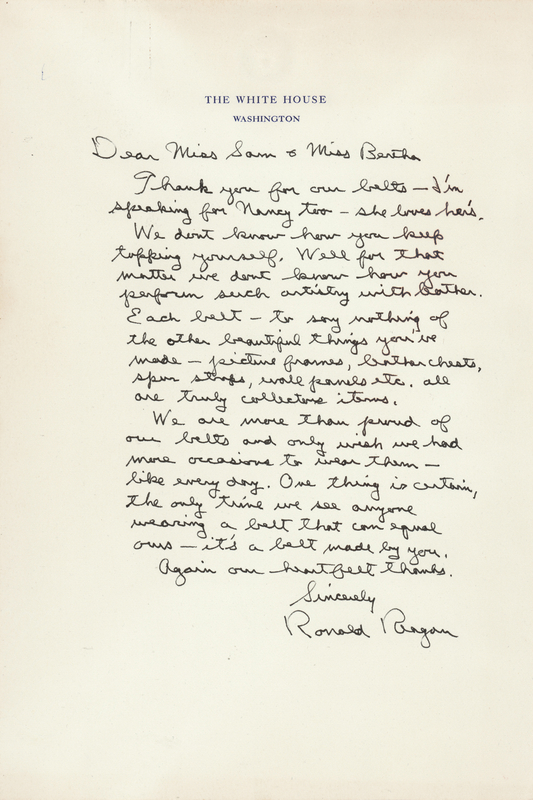 THE WHITE HOUSE
WASHINGTON
Dear Miss Sam & Miss Bertha
Thank you for our belts — I'm
speaking for Nancy too — she loves hers.
We dont know how you keep
topping yourself. Well for that
matter we dont know how you
perform such artistry with leather.
Each belt — to say nothing of
the other beautiful things you've
made — picture frames, leather chests,
spur straps, wall panels etc. all
are truly collectors items.
We are more than proud of
our belts and only wish we had
more occasions to wear them —
like every day. One thing is certain,
the only time we see anyone
wearing a belt that can equal
ours — it's a belt made by you.
Again our heartfelt thanks.
Sincerely
Ronald Reagan